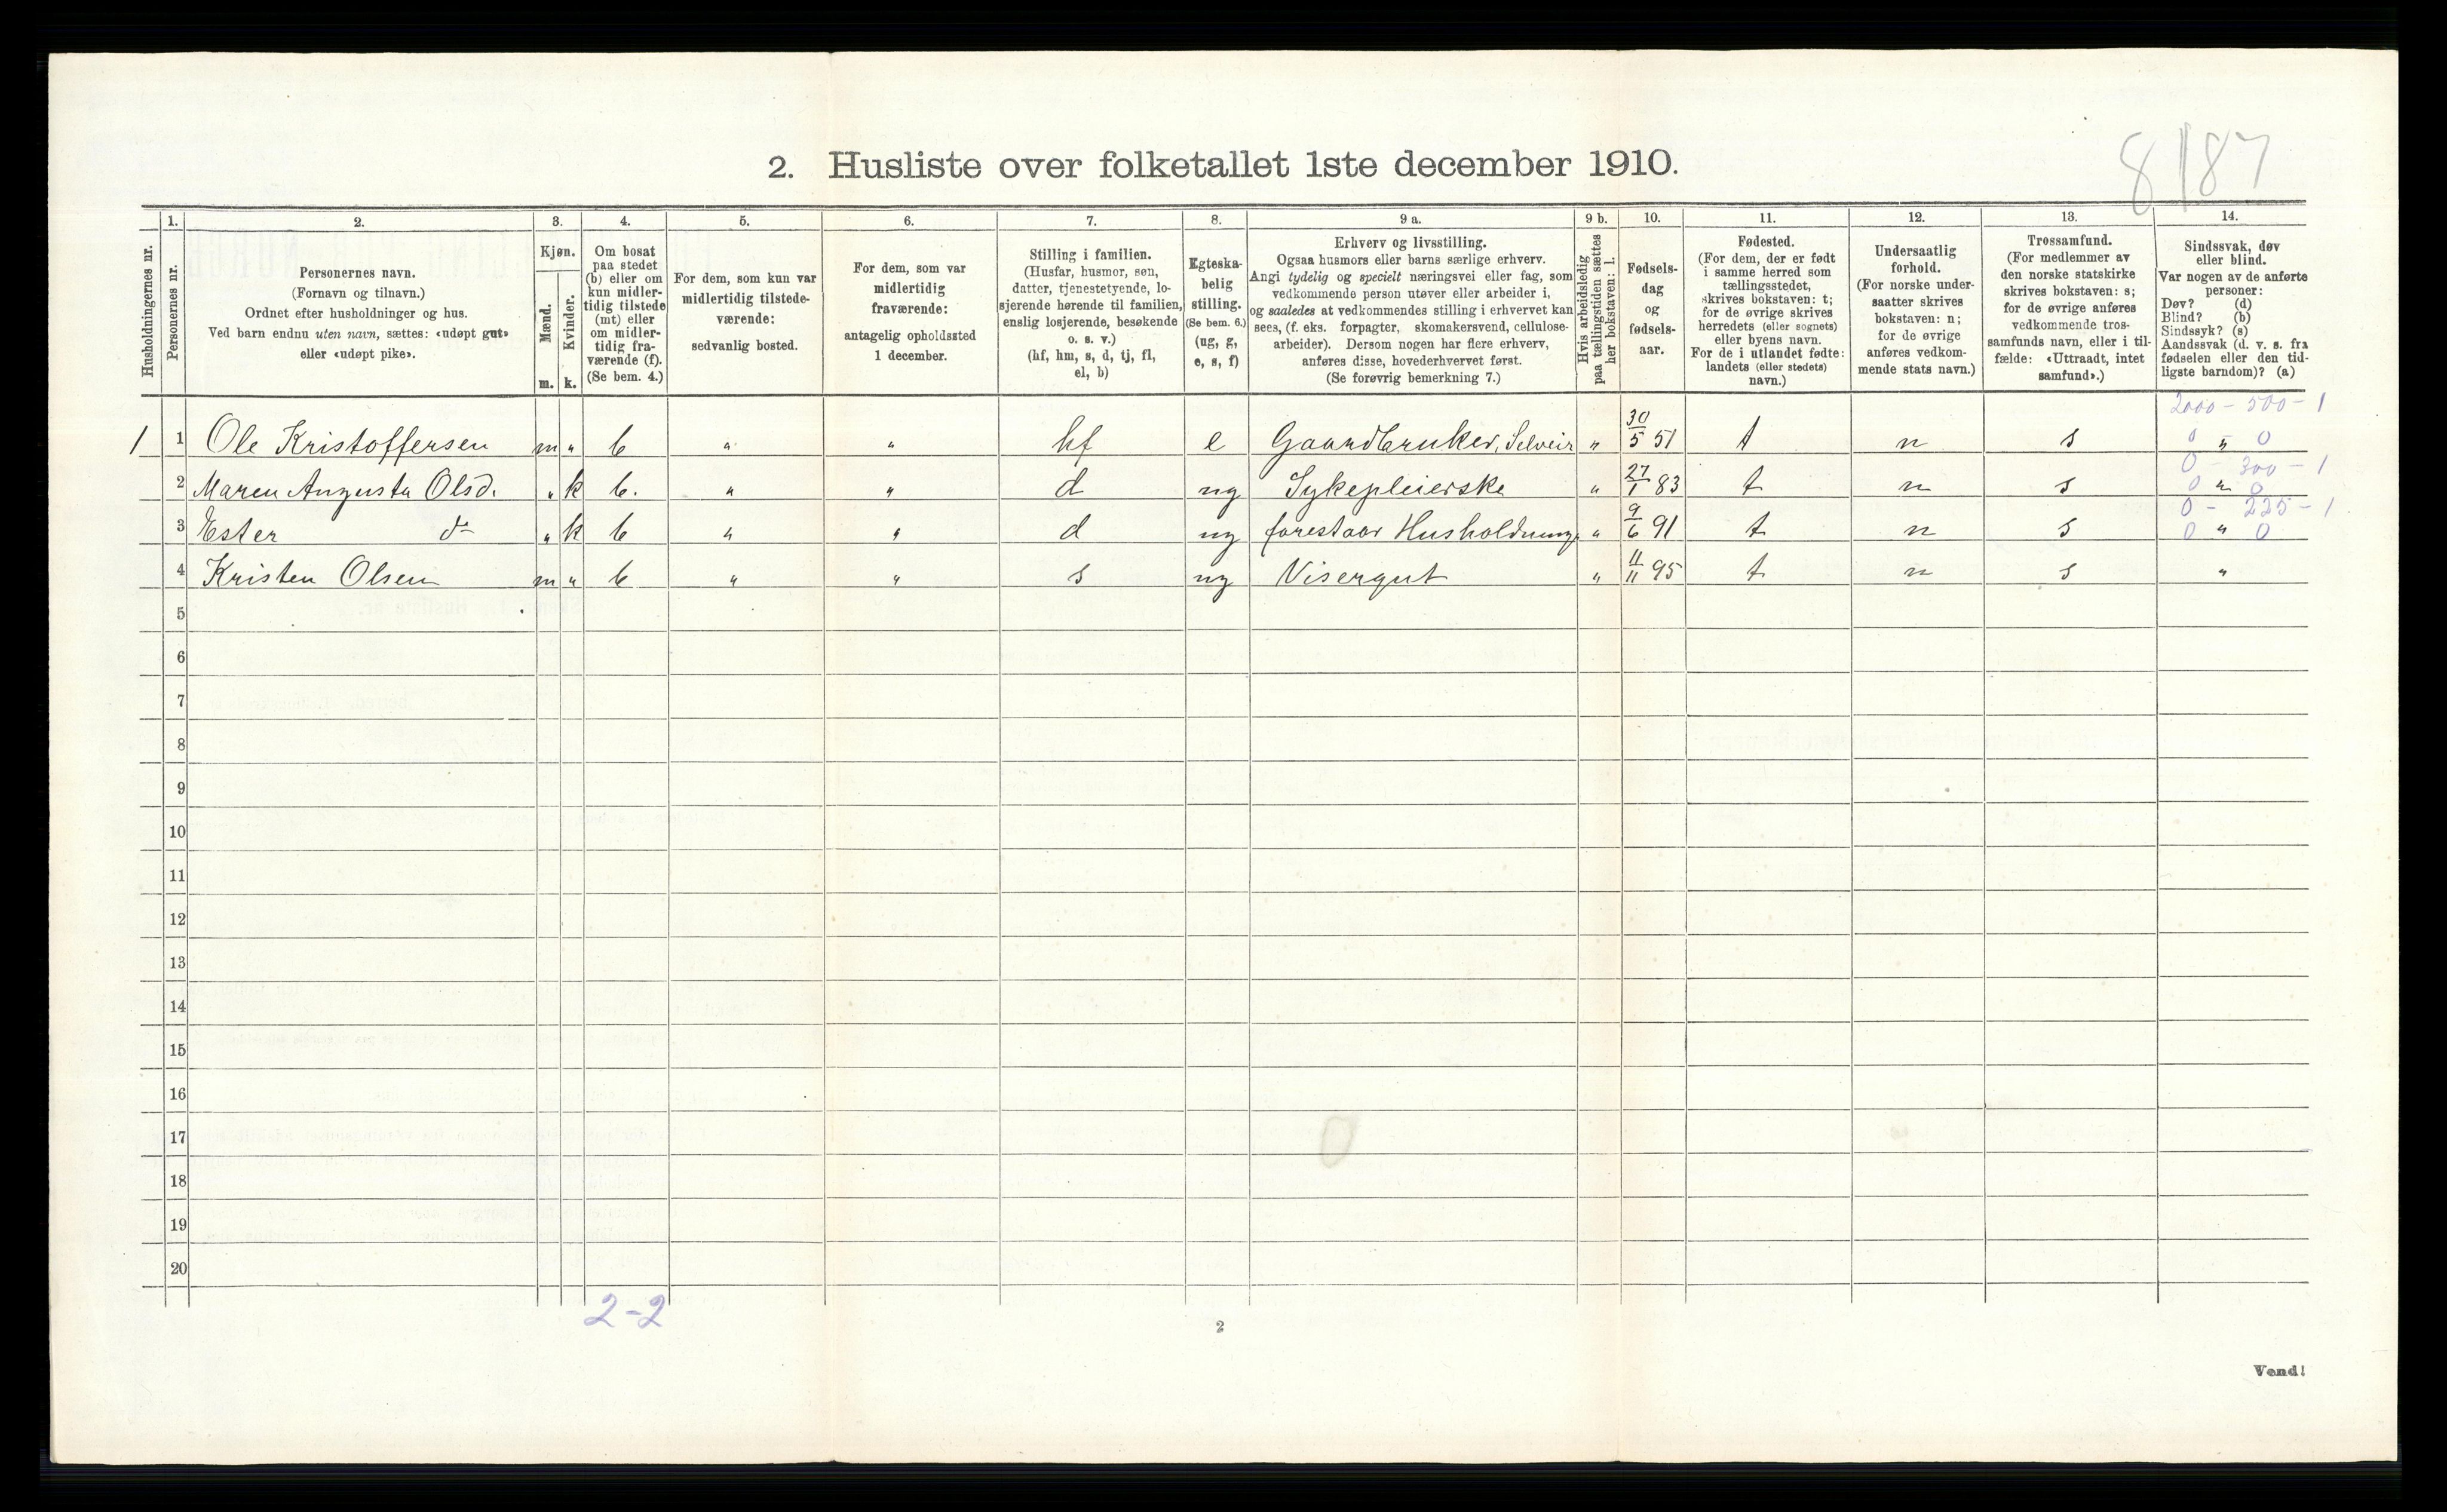 8 || 87
2. Husliste over folketallet 1ste december 1910.
Husholdningernes nr.
1.
Personernes nr.
2.
Personernes navn.
(Fornavn og tilnavn.)
Ordnet efter husholdninger og hus.
Ved barn endnu uten navn, sættes: «udøpt gut»
eller «udøpt pike».
3.
Kjøn.
Mænd.
Kvinder.
m. k.
4.
Om bosat
paa stedet
(b) eller om
kun midler-
tidig tilstede
(mt) eller
om midler-
tidig fra-
værende (f).
(Se bem. 4.)
5.
For dem, som kun var
midlertidig tilstede-
værende:
sedvanlig bosted.
6.
For dem, som var
midlertidig
fraværende:
antagelig opholdssted
1 december.
7.
Stilling i familien.
(Husfar, husmor, søn,
datter, tjenestetyende, lo-
sjerende hørende til familien,
enslig losjerende, besøkende
o. s. v.)
(hf, hm, s, d, tj, fl,
el, b)
8.
Egteska-
belig
stilling.
(Se bem. 6.)
(ug, g,
e, s, f)
9 a.
Erhverv og livsstilling.
Ogsaa husmors eller barns særlige erhverv.
Angi tydelig og specielt næringsvei eller fag, som
vedkommende person utøver eller arbeider i,
og saaledes at vedkommendes stilling i erhvervet kan
sees, (f. eks. forpagter, skomakersvend, cellulose-
arbeider). Dersom nogen har flere erhverv,
anføres disse, hovederhvervet først.
(Se forøvrig bemerkning 7.)
9 b.
Hvis arbeidsledig
paa tællingstiden sættes
her bokstaven: l.
10.
Fødsels-
dag
og
fødsels-
aar.
11.
Fødested.
(For dem, der er født
i samme herred som
tællingsstedet,
skrives bokstaven: t;
for de øvrige skrives
herredets (eller sognets)
eller byens navn.
For de i utlandet fødte:
landets (eller stedets)
navn.)
12.
Undersaatlig
forhold.
(For norske under-
saatter skrives
bokstaven: n;
for de øvrige
anføres vedkom-
mende stats navn.)
13.
Trossamfund.
(For medlemmer av
den norske statskirke
skrives bokstaven: s;
for de øvrige anføres
vedkommende tros-
samfunds navn, eller i til-
fælde: «Uttraadt, intet
samfund».)
14.
Sindssvak, døv
eller blind.
Var nogen av de anførte
personer:
Døv? (d)
Blind? (b)
Sindssyk? (s)
Aandssvak (d. v. s. fra
fødselen eller den tid-
ligste barndom)? (a)
2000 - 500 - 1
1 1 Ole Kristoffersen m " b " " hf e Gaardbruker, Selveir " 30/5 51 t n s 0 " 0
0 - 300 - 1
2 Maren Augusta Olsd. " k b. " " d ug Sykepleierske " 27/1 83 t n s 0 " 0
0 - 225 - 1
3 Ester do " k b " " d ug forestaar Husholdning " 9/6 91 t n s 0 " 0
4 Kristen Olsen m " b " " s ug Visergut " 11/11 95 t n s "
5
6
7
8
9
10
11
12
13
14
15
16
17
18
19
20
2-2
2
Vend!